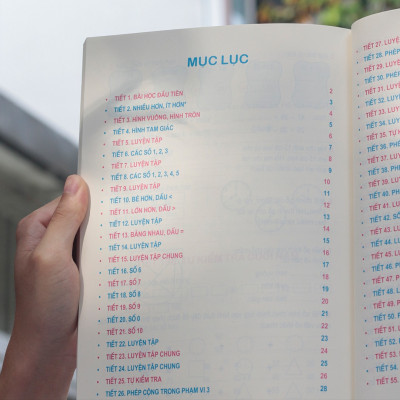 MỤC LỤC
• TIẾT 1. BÀI HỌC ĐẦU TIÊN 2
• TIẾT 2. NHIỀU HƠN, ÍT HƠN* 3
• TIẾT 3. HÌNH VUÔNG, HÌNH TRÒN 4
• TIẾT 4. HÌNH TAM GIÁC 5
• TIẾT 5. LUYỆN TẬP 6
• TIẾT 6. CÁC SỐ 1, 2, 3 7
• TIẾT 7. LUYỆN TẬP 8
• TIẾT 8. CÁC SỐ 1, 2, 3, 4, 5
• TIẾT 9. LUYỆN TẬP 10
• TIẾT 10. BÉ HƠN, DẤU <
• TIẾT 11. LỚN HƠN, DẤU > 12
• TIẾT 12. LUYỆN TẬP
• TIẾT 13. BẰNG NHAU, DẤU =
• TIẾT 14. LUYỆN TẬP
• TIẾT 15. LUYỆN TẬP CHUNG
• TIẾT 16. SỐ 6
• TIẾT 17. SỐ 7
• TIẾT 18. SỐ 8
• TIẾT 19. SỐ 9
• TIẾT 20. SỐ 0
• TIẾT 21. SỐ 10
• TIẾT 22. LUYỆN TẬP 24
• TIẾT 23. LUYỆN TẬP CHUNG
• TIẾT 24. LUYỆN TẬP CHUNG 25
• TIẾT 25. TỰ KIỂM TRA 26
• TIẾT 26. PHÉP CỘNG TRONG PHẠM VI 3 28
• TIẾT 27. LUYỆN
• TIẾT 28. PHÉP
• TIẾT 29. LUYỆN
• TIẾT 30. PHÉP
• TIẾT 31. LUYỆN
• TIẾT 32. LUYỆN
• TIẾT 33.
• TIẾT 34. LUYỆN
• TIẾT 35. TỰ
• TIẾT 36. PHÉP
• TIẾT 37. LUYỆN
• TIẾT 38.
• TIẾT 39.
• TIẾT 40.
• TIẾT 41.
• TIẾT 42. SỐ
• TIẾT 43.
• TIẾT 44.
• TIẾT 45.
• TIẾT 46.
• TIẾT 47.
• TIẾT 48.
• TIẾT 49.
• TIẾT 50.
• TIẾT 51.
• TIẾT 52.
• TIẾT 53.
• TIẾT 54.
• TIẾT 55.